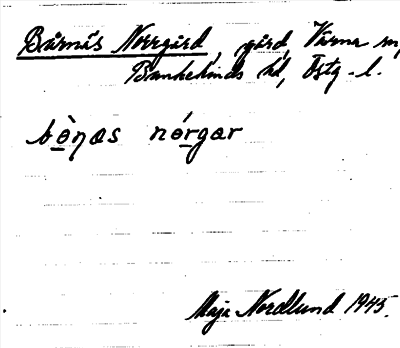 Bärnäs Norrgård, gård, Värna sn,
Bankekinds hd, Östg. l.
bò̠ŋas nó̠rgar
Maja Nordlund 1945.